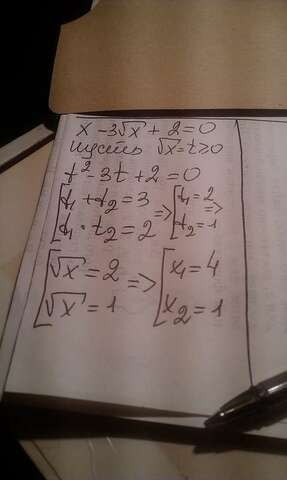 x - 3√x + 2 = 0
пусть √x = t ≥ 0
t² - 3t + 2 = 0
[t₁ + t₂ = 3 => [t₁ = 2 =>
[t₁ · t₂ = 2 [t₂ = 1
[√x = 2 => [x₁ = 4
[√x = 1 [x₂ = 1